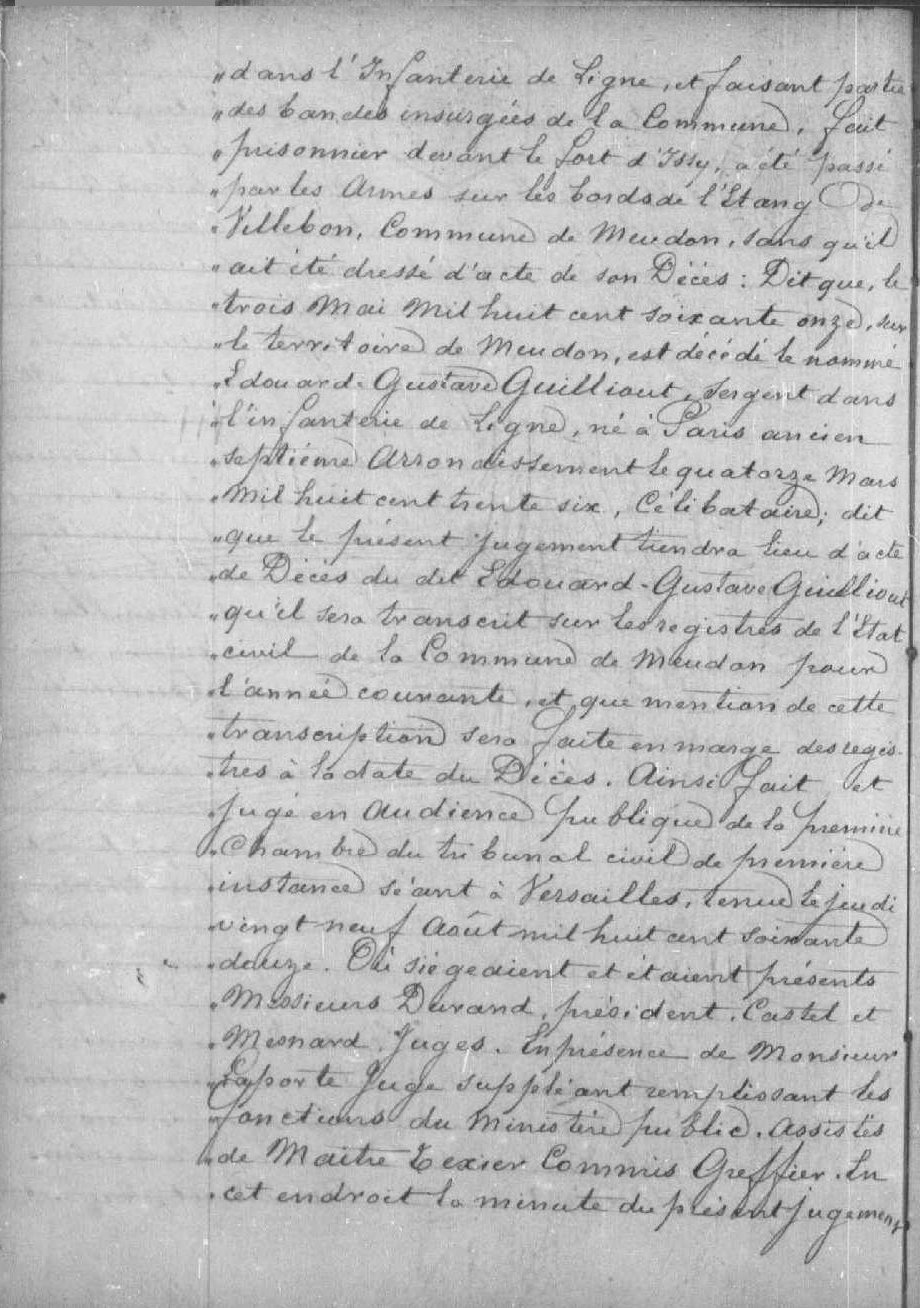 "dans l'Infanterie de Ligne, et faisant partie
"des bandes insurgées de la Commune, fait
"prisonnier devant le fort d'Issy, a été passé
"par les Armes sur les bords de l'Etang de
"Villebon, Commune de Meudon, sans qu'il
"ait été dressé d'acte de son Décès : Dit que, le
"trois Mai Mil huit cent soixante onze, sur
"le territoire de Meudon, est décédé le nommé
"Edouard-Gustave Guilliout, Sergent dans
"l'infanterie de Ligne, né à Paris ancien
"septième Arrondissement le quatorze Mars
"Mil huit cent trente six, Célibataire; dit
"que le présent jugement tiendra lieu d'acte
"de Décès du dit Edouard-Gustave Guilliout
"qu'il sera transcrit sur les registres de l'Etat
"civil de la Commune de Meudon pour
"l'année courante, et que mention de cette
"transcription sera faite en marge des regis-
"tres à la date du Décès. Ainsi fait et
"jugé en audience publique de la première
"Chambre du tribunal civil de première
"instance séant à Versailles, tenue le jeudi
"vingt neuf Août mil huit cent soixante
"douze. Où siégeaient et étaient présents
"Messieurs Durand, président. Castel et
"Mesnard Juges. En présence de Monsieur
"Laporte Juge suppléant remplissant les
"fonctions du Ministère public. Assistés
"de Maître Texier Commis Greffier. En
"cet endroit la minute du présent jugement